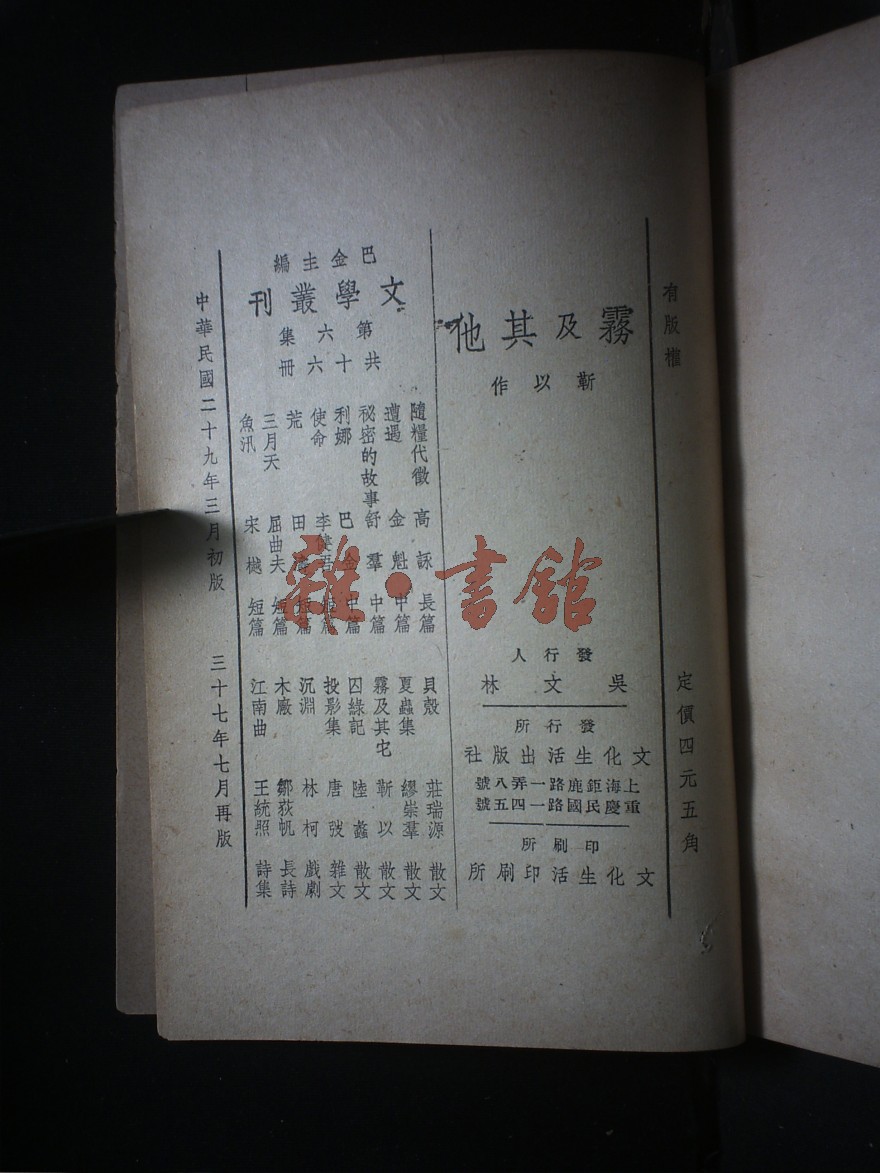 有版權
定價四元五角
霧及其他
靳以作
發行人
吳文林
發行所
文化生活出版社
上海鉅鹿路一弄八號
重慶民國路一四五號
印刷所
文化生活印刷所
巴金主編
文學叢刊
第六集
共十六冊
隨糧代徵 高詠 長篇
遭遇 金魁 中篇
秘密的故事 舒羣 中篇
利娜 巴金 中篇
使命 李健吾 短篇
荒 田 短篇
三月天 屈曲夫 短篇
魚汛 宋樾 短篇
貝殼 莊瑞源 散文
夏蟲集 繆崇羣 散文
霧及其它 靳以 散文
囚綠記 陸蠡 散文
投影集 唐弢 雜文
沉淵 林柯 戲劇
木廠 鄒荻帆 長詩
江南曲 王統照 詩集
中華民國二十九年三月初版
三十七年七月再版
雜·書館